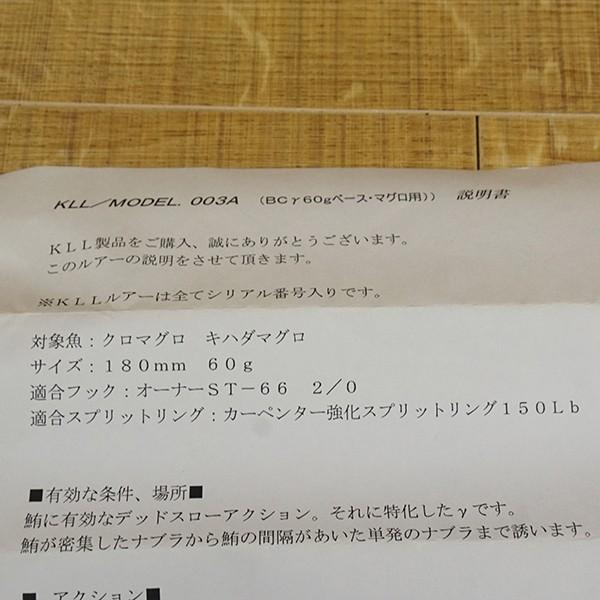 KLL／MODEL. 003A （BCγ60gベース・マグロ用)） 説明書
ＫＬＬ製品をご購入、誠にありがとうございます。
このルアーの説明をさせて頂きます。
※ＫＬＬルアーは全てシリアル番号入りです。
対象魚：クロマグロ　キハダマグロ
サイズ：１８０mm　６０ｇ
適合フック：オーナーＳＴ－６６　２／０
適合スプリットリング：カーペンター強化スプリットリング１５０Ｌｂ
■有効な条件、場所■
鮪に有効なデッドスローアクション。それに特化したγです。
鮪が密集したナブラから鮪の間隔があいた単発のナブラまで誘います。
■ アクション■